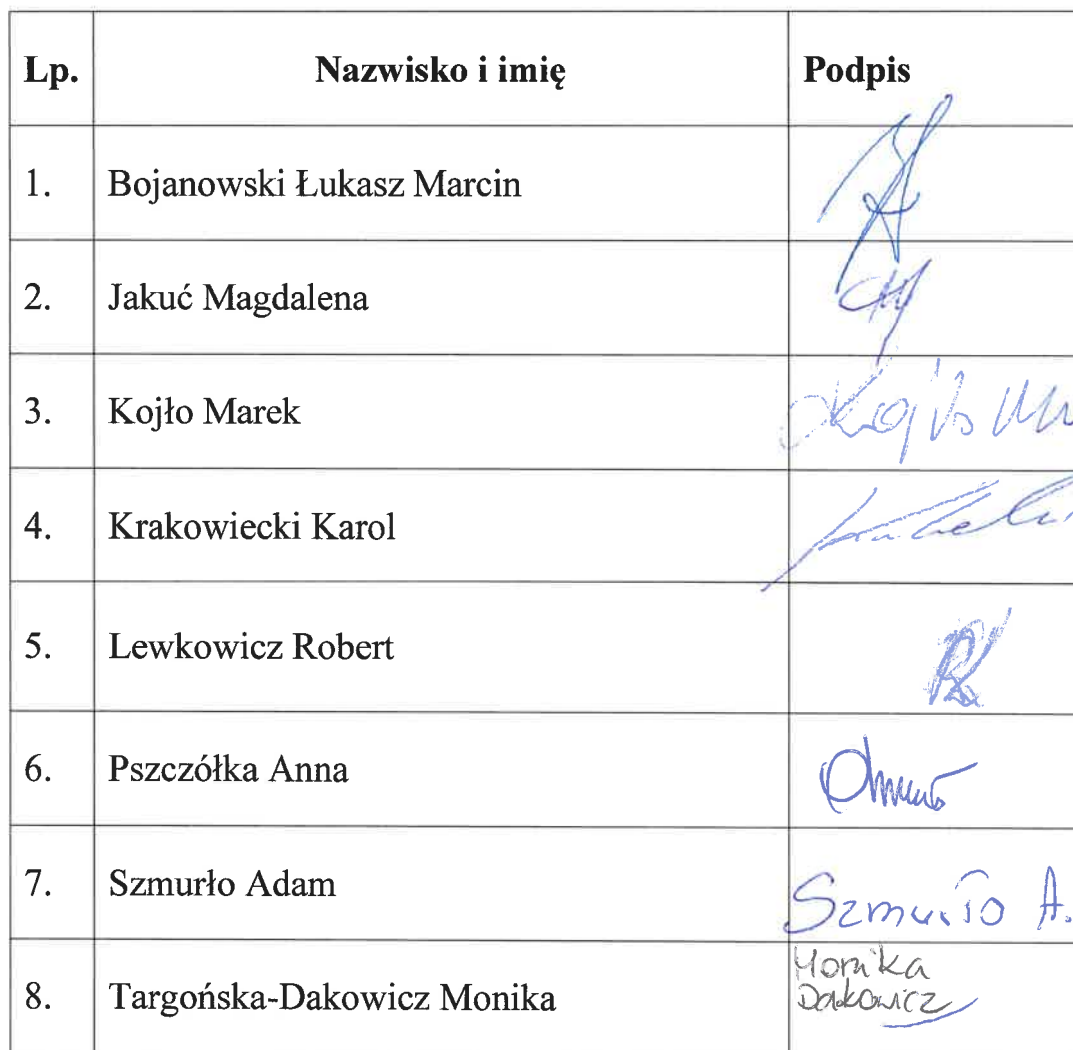 Lp. Nazwisko i imię Podpis
1. Bojanowski Łukasz Marcin
2. Jakuć Magdalena
3. Kojło Marek Kojło
4. Krakowiecki Karol
5. Lewkowicz Robert
6. Pszczółka Anna
7. Szmurło Adam Szmurło A.
8. Targońska-Dakowicz Monika Monika
Dakowicz